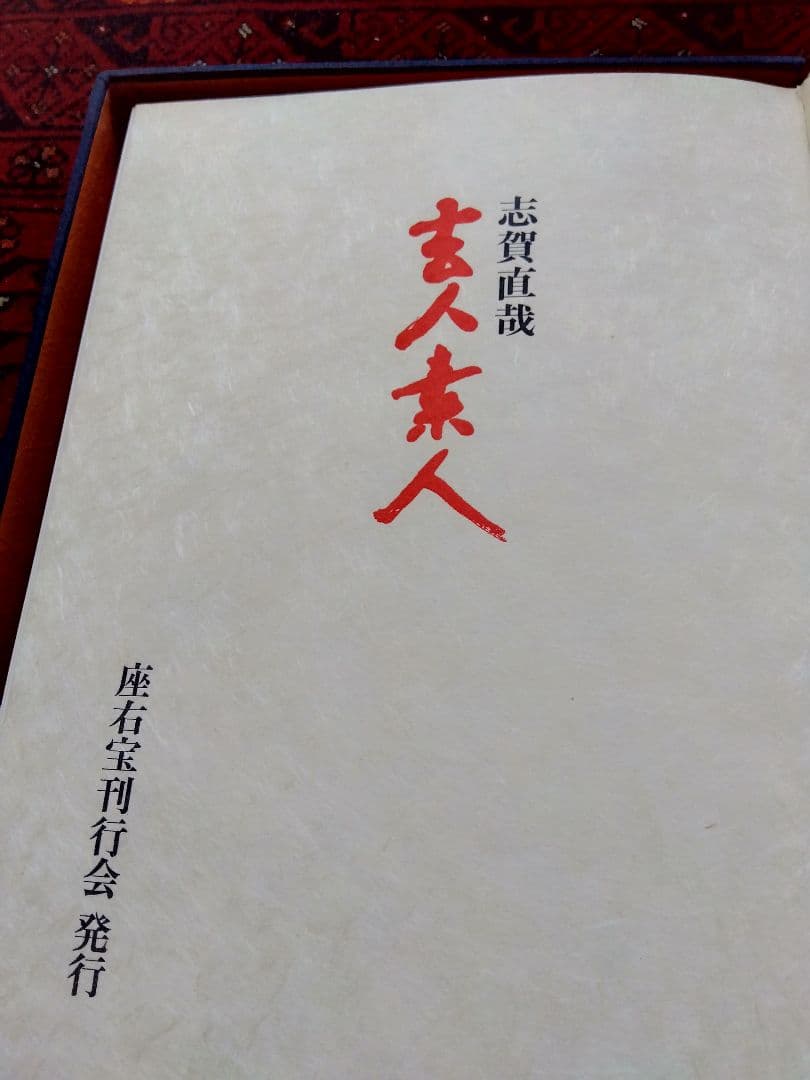 志賀直哉
玄人素人
座右宝刊行会 発行